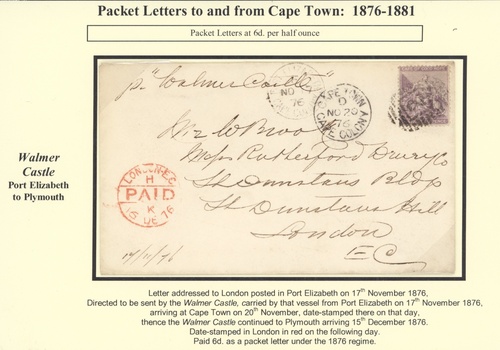 Packet Letters to and from Cape Town: 1876-1881
Packet Letters at 6d. per half ounce
Walmer
Castle
Port Elizabeth
to Plymouth
p "Walmer Castle"
NO
76
CAPE TOWN
D
NO 20
76
CAPE COLONY
Mess Rutherford Drury Co
St Dunstans Bldgs
St Dunstans Hill
London
EC
LONDON E.C
H
PAID
K
15 DE 76
17/11/76
Letter addressed to London posted in Port Elizabeth on 17th November 1876,
Directed to be sent by the Walmer Castle, carried by that vessel from Port Elizabeth on 17th November 1876,
arriving at Cape Town on 20th November, date-stamped there on that day,
thence the Walmer Castle continued to Plymouth arriving 15th December 1876.
Date-stamped in London in red on the following day.
Paid 6d. as a packet letter under the 1876 regime.